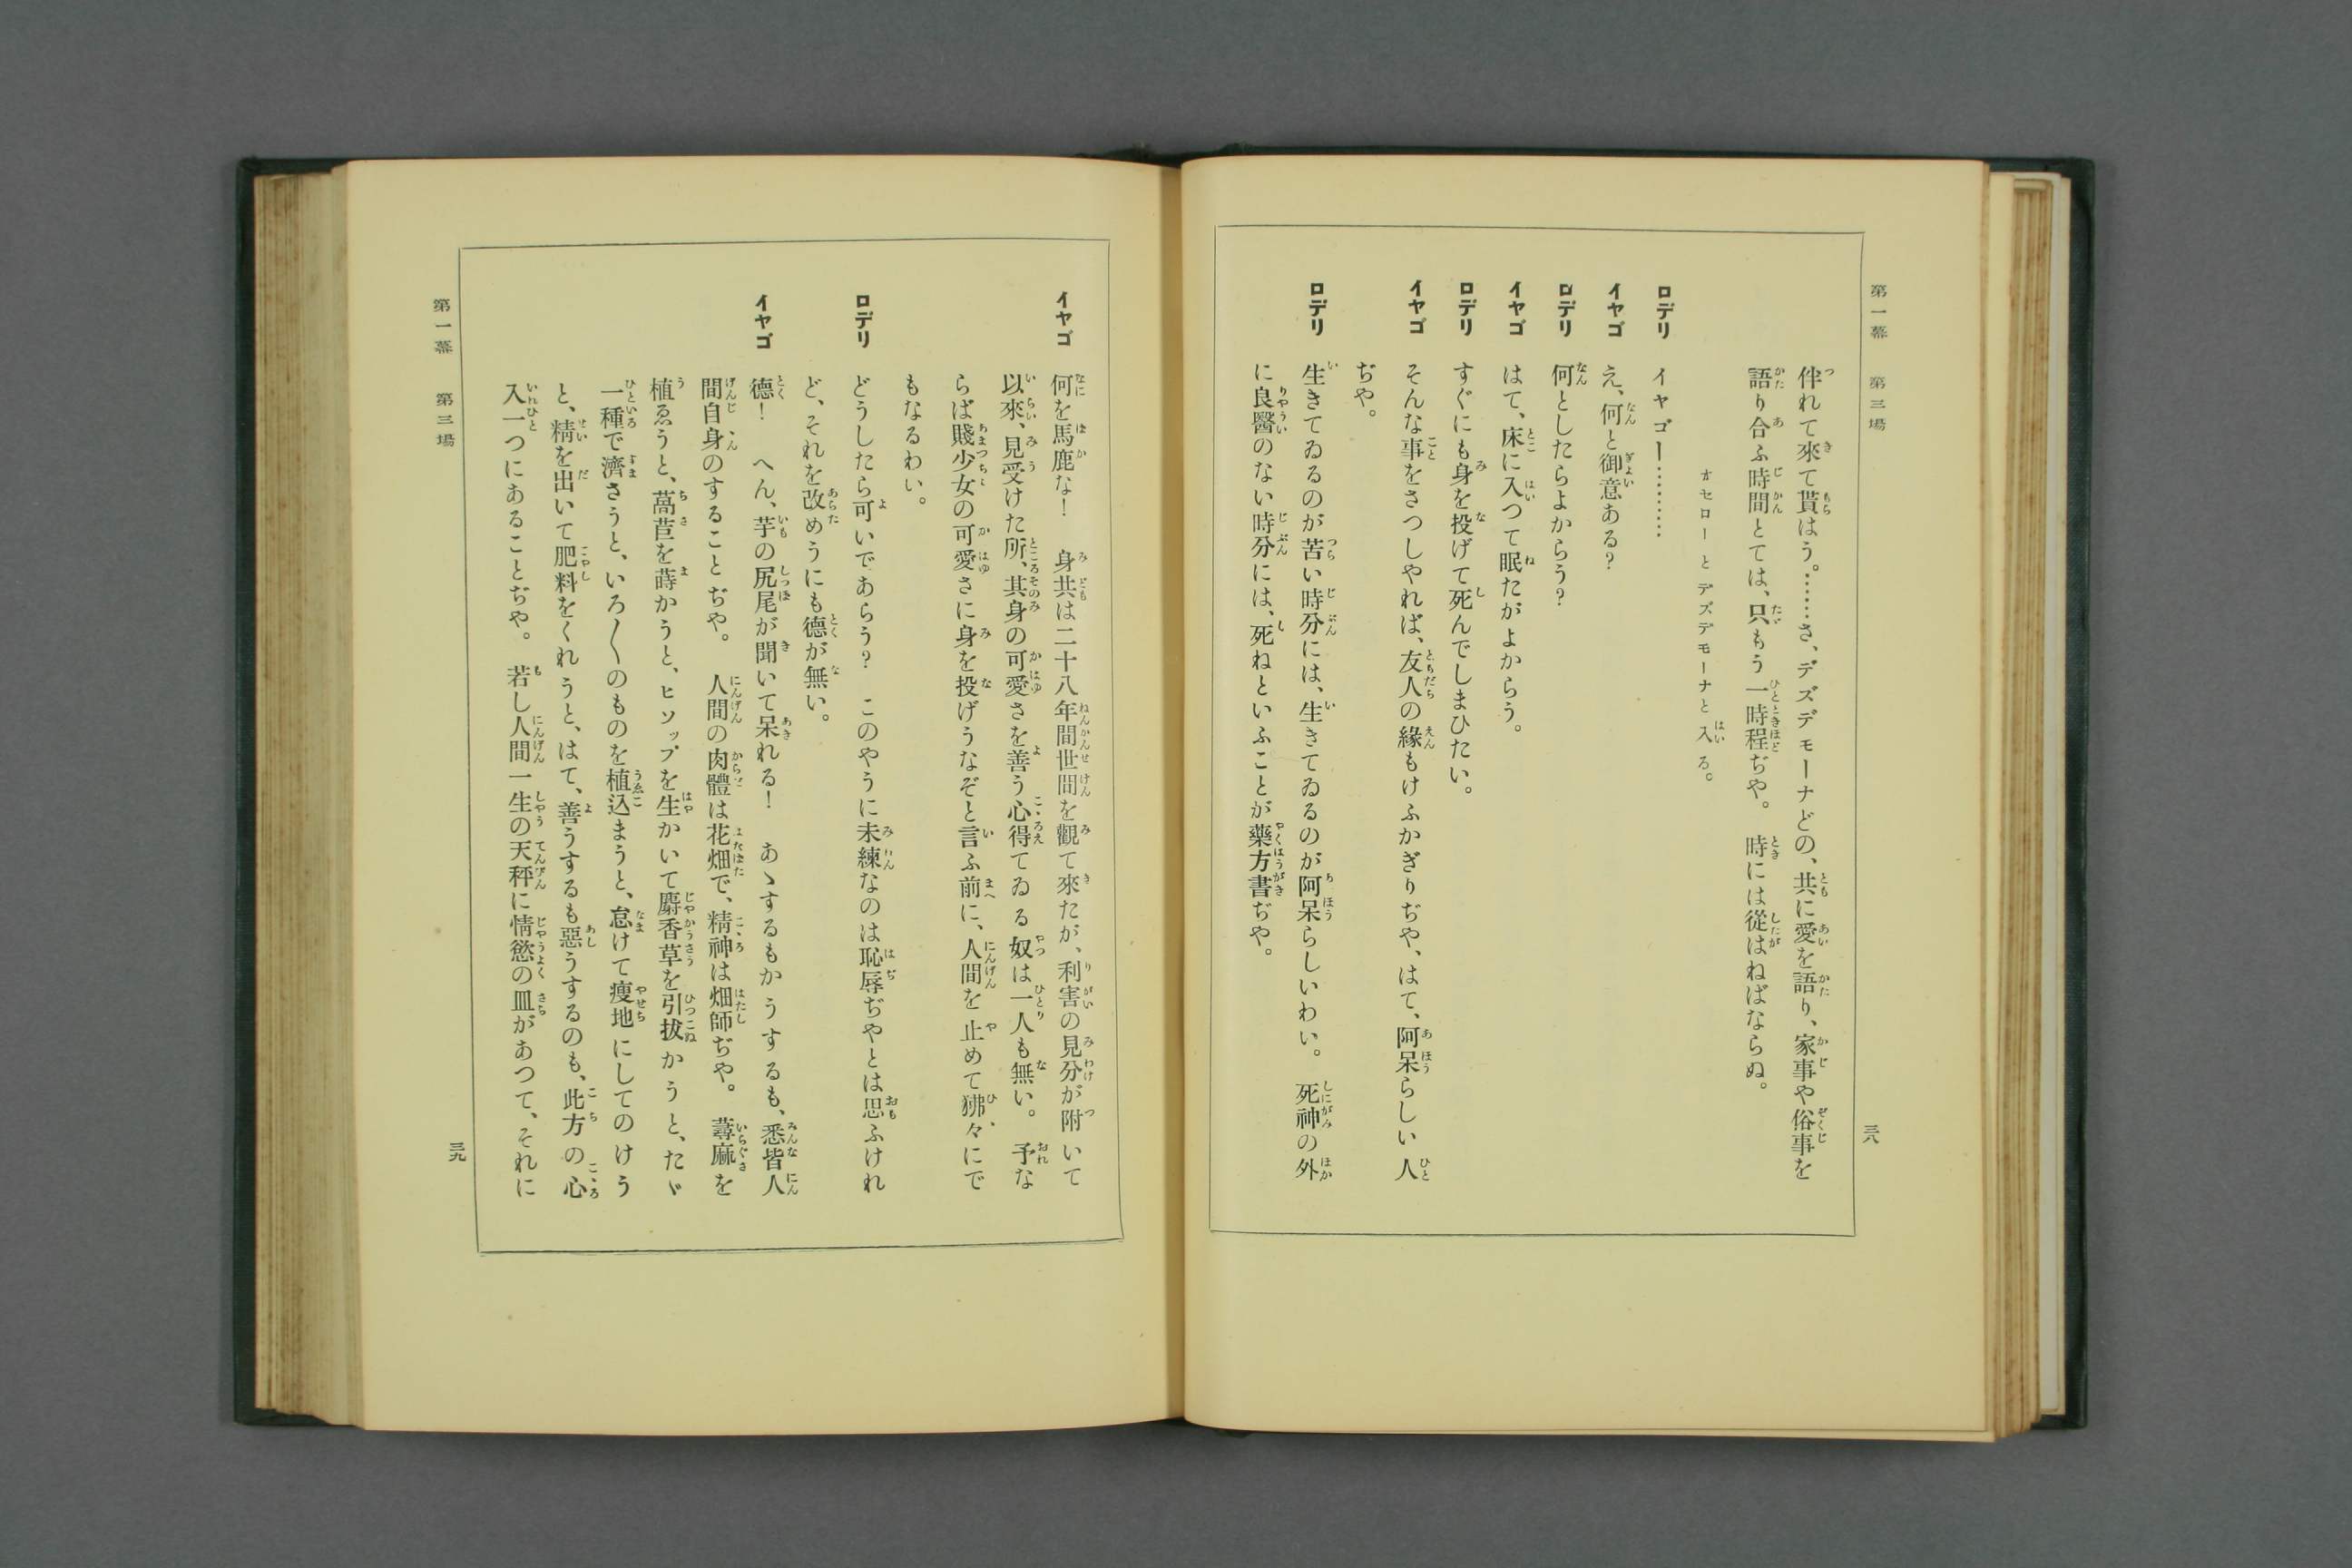 第一幕　第三場
伴れて來て貰はう。……さ、デズデモーナどの、共に愛を語り、家事や俗事を
語り合ふ時間とては、只もう一時程ぢや。　時には從はねばならぬ。
オセローとデズデモーナと入る。
ロデリ　イヤゴー…………
イヤゴ　え、何と御意ある？
ロデリ　何としたらよからう？
イヤゴ　はて、床に入つて眠たがよからう。
ロデリ　すぐにも身を投げて死んでしまひたい。
イヤゴ　そんな事をさつしやれば、友人の緣もけふかぎりぢや、はて、阿呆らしい人
ぢや。
ロデリ　生きてゐるのが苦い時分には、生きてゐるのが阿呆らしいわい。　死神の外
に良醫のない時分には、死ねといふことが藥方書ぢや。
三八
イヤゴ　何を馬鹿な！　身共は二十八年間世間を觀て來たが、利害の見分が附いて
以來、見受けた所、其身の可愛さを善う心得てゐる奴は一人も無い。　予な
らば賤少女の可愛さに身を投げうなぞと言ふ前に、人間を止めて狒々にで
もなるわい。
ロデリ　どうしたら可いであらう？　このやうに未練なのは恥辱ぢやとは思ふけれ
ど、それを改めうにも德が無い。
イヤゴ　德！　へん、芋の尻尾が聞いて呆れる！　あゝするもかうするも、悉皆人
間自身のすることぢや。　人間の肉體は花畑で、精神は畑師ぢや。　蕁麻を
植ゑうと、萵苣を蒔かうと、ヒソップを生かいて麝香草を引拔かうと、たゞ
一種で濟さうと、いろ〳〵のものを植込まうと、怠けて瘦地にしてのけう
と、精を出いて肥料をくれうと、はて、善うするも惡うするのも、此方の心
入一つにあることぢや。　若し人間一生の天秤に情慾の皿があつて、それに
第一幕　第三場
三九